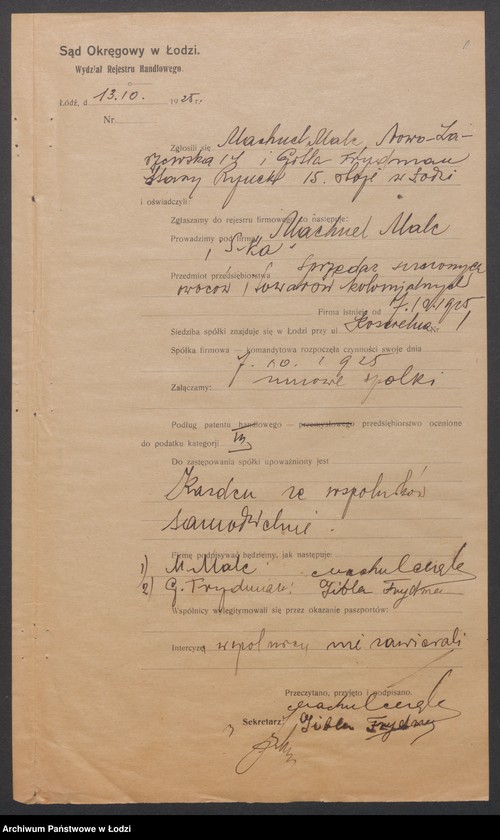 Sąd Okręgowy w Łodzi.
Wydział Rejestru Handlowego.
Łódź, d 13.10. 1925 r.
Nr.
Zgłosili się Machuel Malc, Nowo-Za-
rzewska 17 i Gitla Frydman
Stary Rynek 15. w Łodzi
i oświadczyli:
Zgłaszamy do rejestru firmowego co następuje:
Prowadzimy pod firmą „Machuel Malc
i S-ka"
Przedmiot przedsiębiorstwa sprzedaż suszonych
owoców i towarów kolonjalnych
Firma istnieje od 7. 1925
Siedziba spółki znajduje się w Łodzi przy ul. Kościelna Nr 1
Spółka firmowa — komandytowa rozpoczęła czynności swoje dnia
7. 10. 1925
Załączamy: umowę spółki
Podług patentu handlowego — przemysłowego przedsiębiorstwo ocenione
do podatku kategorji III
Do zastępowania spółki upoważniony jest
Każden ze wspólników
samodzielnie.
Firmę podpisywać będziemy, jak następuje:
1) M. Malc
2) G. Frydman: Gitla Frydman
Wspólnicy wylegitymowali się przez okazanie paszportów:
Intercyzę wspólnicy nie zawierali
Przeczytano, przyjęto i podpisano.
Sekretarz: Gitla Frydman
Archiwum Państwowe w Łodzi